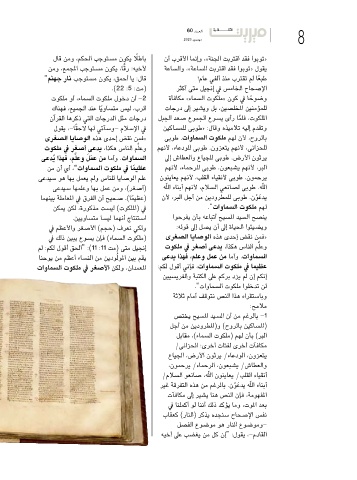 8
العدد 60
نوفمبر 2023
«توبوا فقد اقتربت الجنة»، وإنما الأقرب أن
يقول «توبوا فقد اقتربت الساعة»، والساعة
طبعًا لم تقترب منذ ألفي عام!
الإصحاح الخامس في إنجيل متى أكثر
وضوحًا في كون «ملكوت السماء» مكافأة
للمؤمنين المخلصين، بل ويشير إلى درجات
الملكوت، فلمّا رأى يسوع الجموع صعد الجبل
وتقدم إليه تلاميذه وقال: «طوبى للمساكين
بالروح، لأن لهم ملكوت السماوات. طوبى
للحزانى، لأنهم يتعزون. طوبى للودعاء، لأنهم
يرثون الأرض. طوبى للجياع والعطاش إلى
البر، لأنهم يشبعون. طوبى للرحماء، لأنهم
يرحمون. طوبى لأنقياء القلب، لأنهم يعاينون
الله. طوبى لصانعي السلام، لأنهم أبناء الله
يدعَوْن. طوبى للمطرودين من أجل البر، لأن
لهم ملكوت السماوات"
ينصح السيد المسيح أتباعه بأن يفرحوا
ويصلوا الحياة إلى أن يصل إلى قوله:
«فمن نقض إحدى هذه الوصايا الصغرى
وعلّم الناس هكذا، يدعى أصغر في ملكوت
السماوات. وأما من عمل وعلّم، فهذا يدعى
عظيمًا في ملكوت السماوات. فإني أقول لكم
إنكم إن لم يزد بركم على الكتبة والفريسيين
لن تدخلوا ملكوت السماوات".
وباستقراء هذا النص نتوقف أمام ثلاثة
ملامح:
1- بالرغم من أن السيد المسيح يختص
(المساكين بالروح) و(المطرودين من أجل
البر) بأن لهم (ملكوت السماء)، مقابل
مكافآت أخرى لفئات أخرى: الحزانى/
يتعزون، الودعاء/ يرثون الأرض، الجياع
والعطاش/ يشبعون، الرحماء/ يرحمون،
أنقياء القلب/ يعاينون الله، صانعو السلام/
أبناء الله يدعَوْن. بالرغم من هذه التفرقة غير
المفهومة، فإن النص هنا يشير إلى مكافآت
بعد الموت، وما يؤكد ذلك أننا لو أكملنا في
نفس الإصحاح سنجده يذكر (النار) كعقاب
–وموضوع النار هو موضوع الفصل
القادم–، يقول: "إن كل من يغضب على أخيه
باطلًا يكون مستوجب الحكم، ومن قال
لأخيه: رقًا، يكون مستوجب المجمع، ومن
قال: يا أحمق، يكون مستوجب نار جهنم"
(مت: 5: 22).
2- أن دخول ملكوت السماء، أو ملكوت
الرب، ليس متساويًا عند الجميع، فهناك
درجات مثل الدرجات التي ذكرها القرآن
في الإسلام –وسنأتي لها لاحقًا–. يقول
«فمن نقض إحدى هذه الوصايا الصغرى
وعلّم الناس هكذا، يدعى أصغر في ملكوت
السماوات. وأما من عمل وعلّم، فهذا يُدعى
عظيمًا في ملكوت السماوات". أي أن من
علم الوصايا للناس ولم يعمل بها هو سيدعى
(أصغر)، ومن عمل بها وعلمها سيدعى
(عظيمًا). صحيح أن الفرق في المعاملة بينهما
في (الملكوت) ليست مذكورة، لكن يمكن
استنتاج أنهما ليسا متساويين.
ولكي نعرف (حجم) الأصغر والأعظم في
(ملكوت السماء) فإن يسوع يبين ذلك في
إنجيل متى (مت 11: 11): "الحق أقول لكم: لم
يقم بين المولودين من النساء أعظم من يوحنا
المعمدان، ولكن الأصغر في ملكوت السماوات